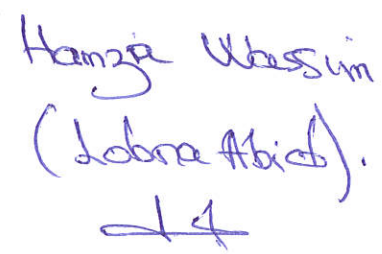 Hamza Wassim
(Lobna Abid).